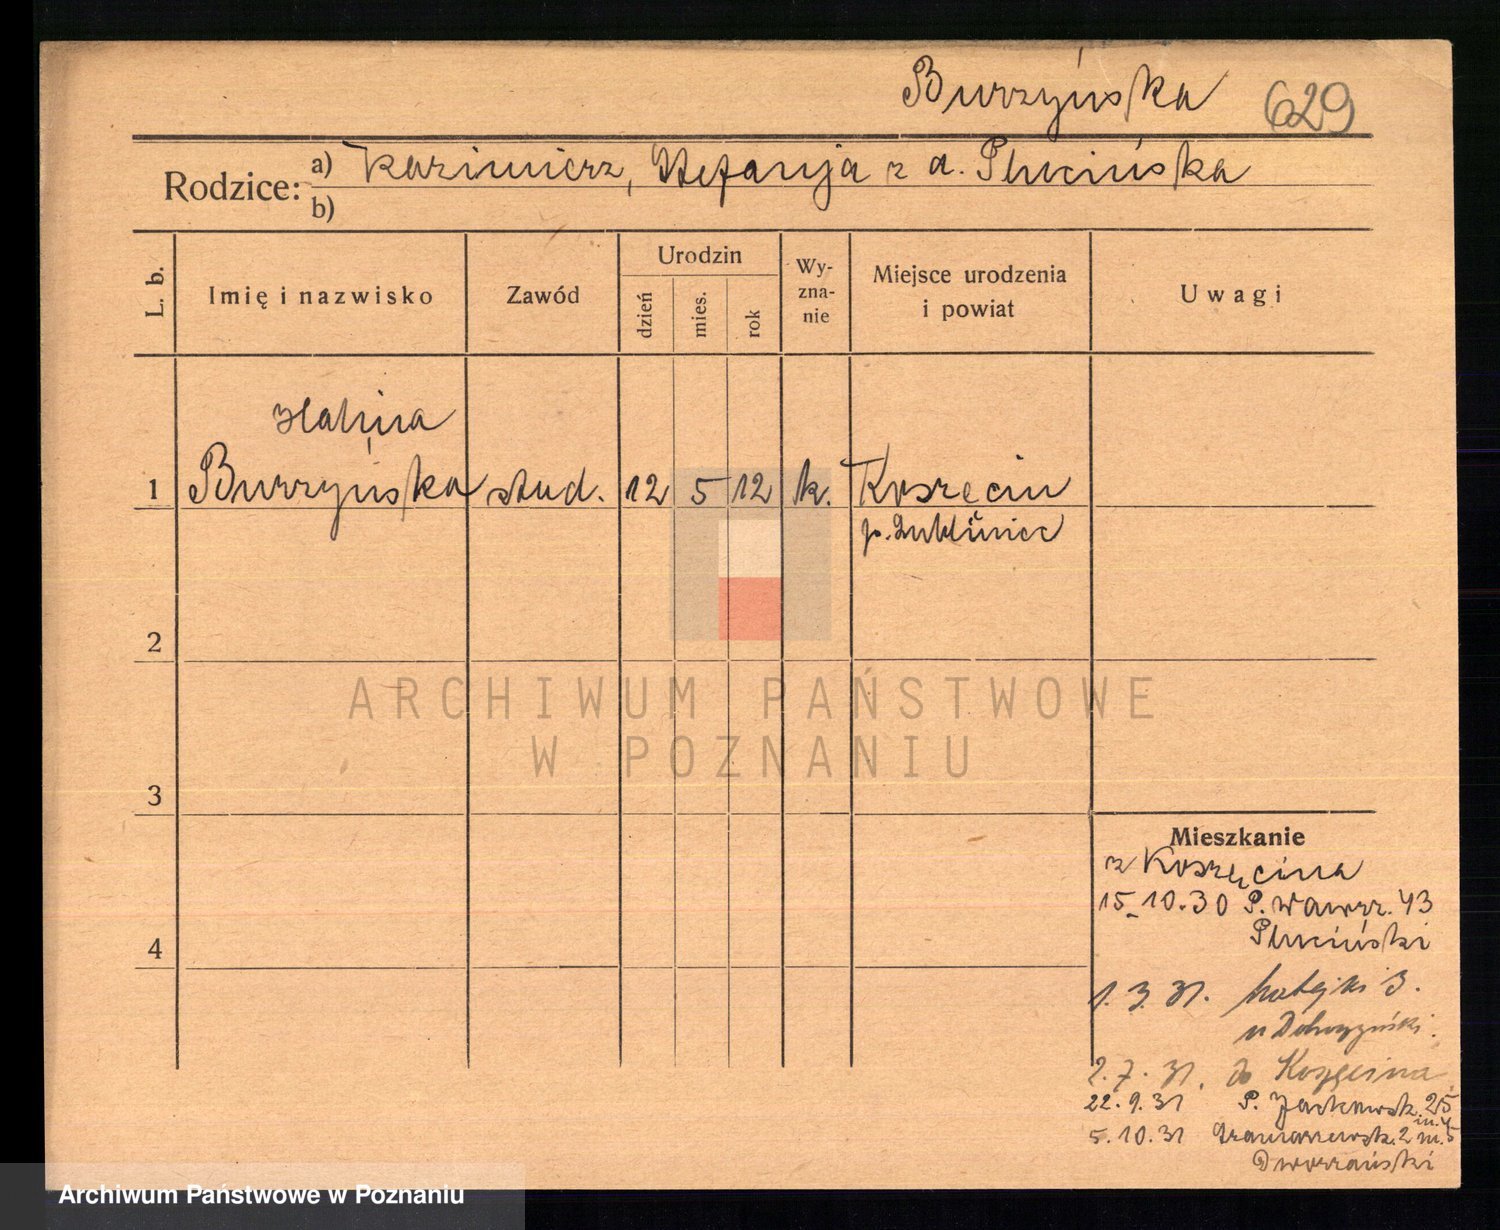 Burzyńska 629
Rodzice: a) Kazimierz, Stefanja z d. Plucińska
b)
L. b. Imię i nazwisko Zawód Urodzin dzień mies. rok Wyznanie Miejsce urodzenia i powiat Uwagi
Halina
1 Burzyńska stud. 12 5 12 k. Koszęcin
p. Lubliniec
2
ARCHIWUM PAŃSTWOWE
W POZNANIU
3
Mieszkanie
z Koszęcina
15.10.30 P. Wawrz. 43
Pluciński
4
1.3.31. Matejki 3.
u Dobrzyński.
2.7.31. do Koszęcina
22.9.31 P. Jackowsk. 25
m. 4
5.10.31 2 m. 5
Dworzański
Archiwum Państwowe w Poznaniu